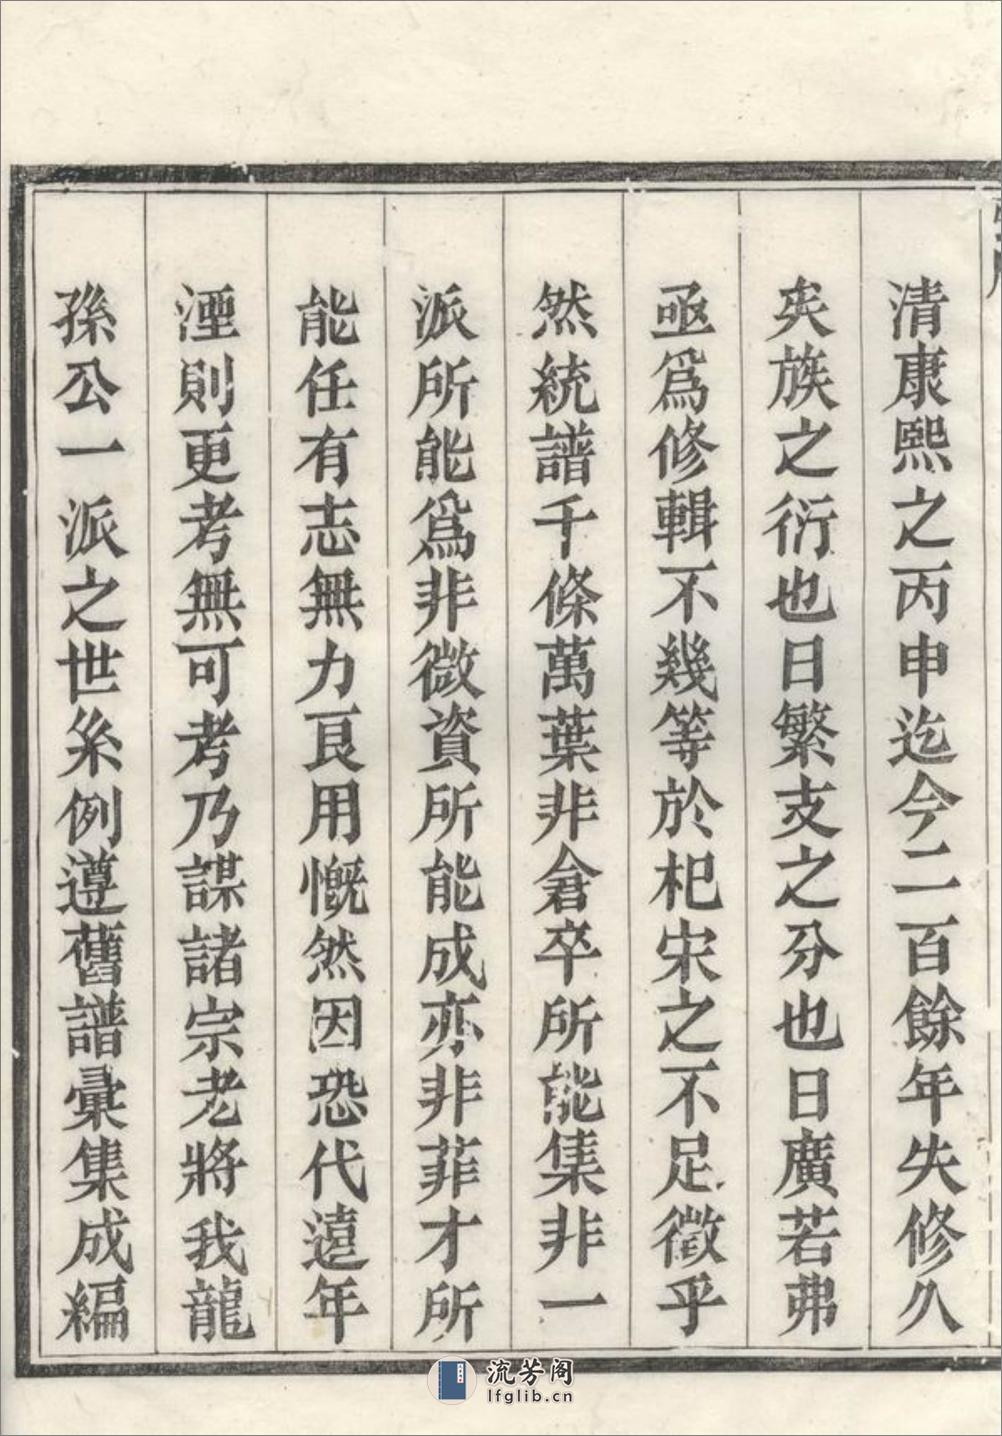 清康熙之丙申迄今二百餘年失修久
矣族之衍也日繁支之分也日廣若弗
亟爲修輯不幾等於杞宋之不足徵乎
然統譜千條萬葉非倉卒所能集非一
派所能爲非微資所能成亦非菲才所
能任有志無力良用慨然因恐代遠年
湮則更考無可考乃謀諸宗老將我龍
孫公一派之世系例遵舊譜彙集成編
流芳阁
lfglib.cn